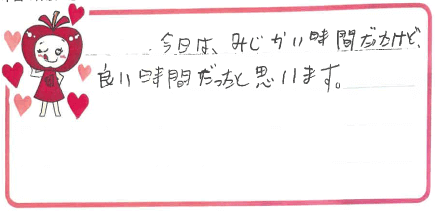 今日は、みじかい時間だったけど、
良い時間だったと思います。